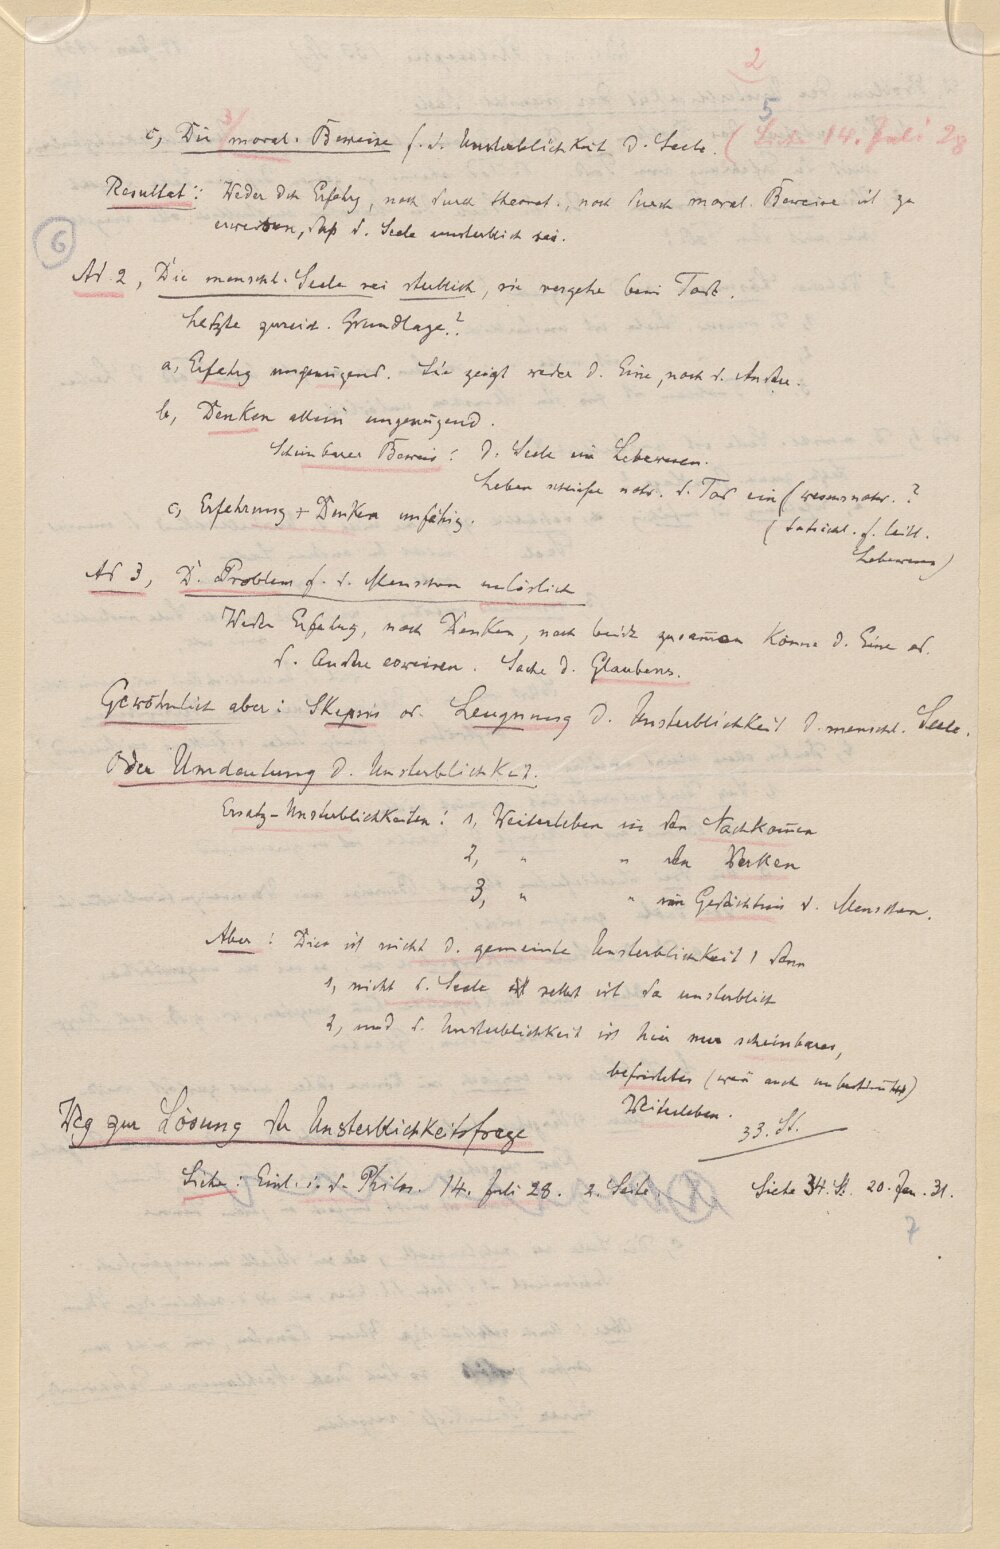 2
5
3/
c, Die moral. Beweise f. d. Unsterblichkeit d. Seele. (Siehe 14. Juli 28
Resultat: Weder dch Erfahrg, noch durch theoret., noch durch moral. Beweise ist zu
erweisen, daß d. Seele unsterblich sei.
6
Ad 2, Die menschl. Seele sei sterblich, sie vergehe beim Tod.
Letzte zureich. Grundlage?
a, Erfahrg ungenügend. Sie zeigt weder d. Eine, noch d. Andre.
b, Denken allein ungenügend.
Scheinbarer Beweis: D. Seele ein Lebewesen.
Leben schließe notw. d. Tod ein (wesensnotw.?
(tatsächl. f. leibl.
Lebewesen)
c, Erfahrung + Denken unfähig.
Ad 3, D. Problem f. d. Menschen unlöslich
Weder Erfahrg, noch Denken, noch beide zusammen könne d. Eine od.
d. Andre erweisen. Sache d. Glaubens.
Gewöhnlich aber: Skepsis od. Leugnung d. Unsterblichkeit d. menschl. Seele.
Oder Umdeutung d. Unsterblichkeit.
Ersatz-Unsterblichkeiten: 1, Weiterleben in den Nachkommen
2, " " den Werken
3, " " im Gedächtnis d. Menschen.
Aber: Dies ist nicht d. gemeinte Unsterblichkeit, denn
1, nicht d. Seele selbst ist da unsterblich
2, und d. Unsterblichkeit ist hier nur scheinbares,
befristetes (wenn auch unbestimmt)
Weiterleben.
33. St.
Weg zur Lösung der Unsterblichkeitsfrage
Siehe: Einl. i. d. Philos. 14. Juli 28. 2. Seite. Siehe 34. St. 20. Jan. 31.
7